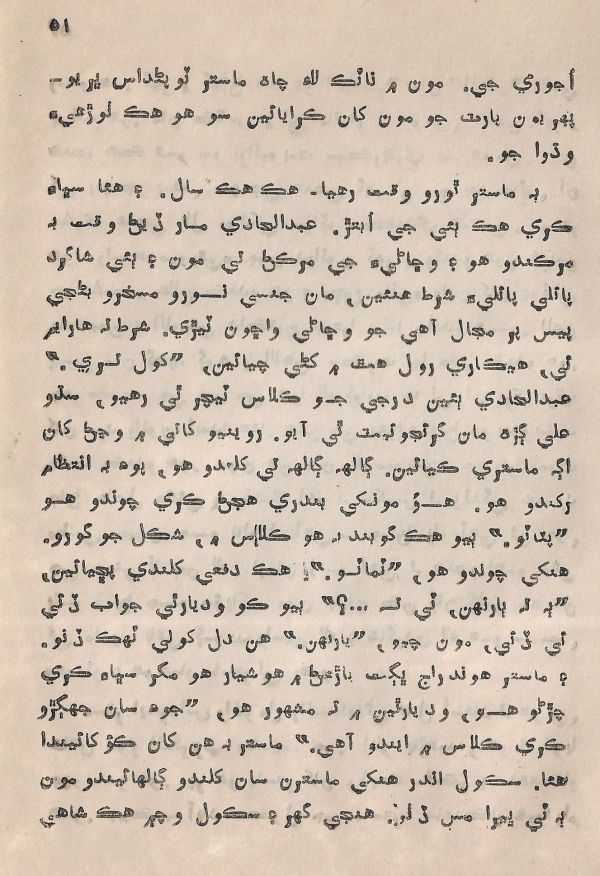 ٥١
أجوري جي. مون ۾ ناٽڪ لاءِ چاه ماستر ٽوپڻداس ڀريو۔
پهريون پارٽ جو مون کان ڪرايائين سو هو هڪ ٽوڙهيءَ
وڌوا جو.
ٻه ماستر ٿورو وقت رهيا۔ هڪ هڪ سال. ۽ هئا سڀاءَ
ڪري هڪ ٻئي جي اُبتڙ. عبدالهادي مار ڏيڻ وقت به
مرڪندو هو ۽ وڇاڻيءَ جي مرڪڻ تي مون ۽ ٻئي شاگرد
پائلي پائليءَ شرط هنئين، مان جنسي نسورو مسخرو بڻجي
پيس پر مجال آهي جو وڇاڻي واڇون ٽيڙي. شرط ته هارايم
ئي، هيڪاري رول هٿ ۾ کڻي چيائين، ”کول تري.“
عبدالهادي ٻئين درجي جو ڪلاس ٽيچر ٿي رهيو، سڌو
علي ڳڙه مان گرئجوئيٽ ٿي آيو. روينيو کاتي ۾ وڃڻ کان
اڳ ماستري ڪيائين. ڳالهه ڳالهه تي کلندو هو، پوءِ به انتظام
رکندو هو. هو مونکي بندري هجڻ ڪري چوندو هو
”پٽاٽو.“ ٻيو هڪ گوبند به هو ڪلاس ۾، شڪل جو گورو.
هنکي چوندو هو، ”ٽماٽو.“ هڪ دفعي کلندي پڇيائين،
”ٻه ته ٻارنهن، ٽي ته ...؟“ ٻيو ڪو وديارٿي جواب ڏئي
ئي ڏئي، مون چيو، ”ٻارنهن.“ هن دل کولي ٽهڪ ڏنو.
۽ ماستر هوندراج ڀڳت پاڙهڻ ۾ هوشيار هو مگر سڀاءَ ڪري
چڙڻو هو، وديارٿين ۾ ته مشهور هو، ”جوءِ سان جهڳڙو
ڪري ڪلاس ۾ ايندو آهي.“ ماستر به هن کان ڪؤ کائيندا
هئا. سڪول اندر هنکي ماسترن سان کلندو ڳالهائيندو مون
ٻه ٽي ڀيرا مس ڏٺو. هنجي گهر ۽ سڪول وچ ۾ هڪ شاهي